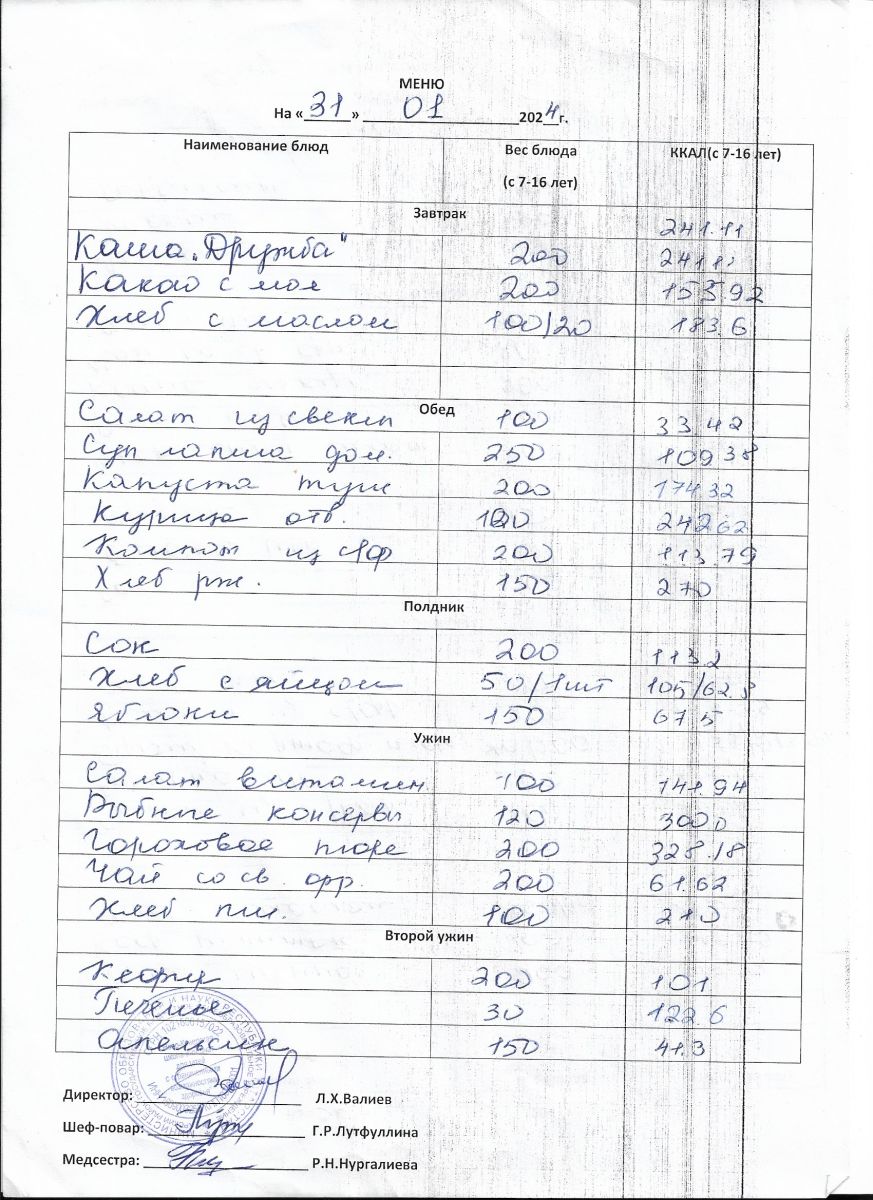 МЕНЮ
На «31» 01 2024г.
Наименование блюд Вес блюда (с 7-16 лет) ККАЛ(с 7-16 лет)
Завтрак
241.11
Каша „Дружба" 200 241.11
Какао с мол 200 155.92
Хлеб с маслом 100/20 183.6
Обед
Салат из свеклы 100 33.42
Суп лапша дом. 250 109.38
Капуста туш 200 174.32
Курица отв. 100 242.62
Компот из с/ф 200 113.79
Хлеб рж. 150 270
Полдник
Сок 200 113.2
Хлеб с яйцом 50/1шт 105/62.8
Яблоки 150 67.5
Ужин
Салат витамин 100 141.94
Рыбные консервы 120 300
Гороховое пюре 200 328.18
Чай со св. фр. 200 61.62
Хлеб пш. 100 210
Второй ужин
Кефир 200 101
Печенье 30 122.6
Апельсин 150 41.3
Директор: Л.Х.Валиев
Шеф-повар: Г.Р.Лутфуллина
Медсестра: Р.Н.Нургалиева